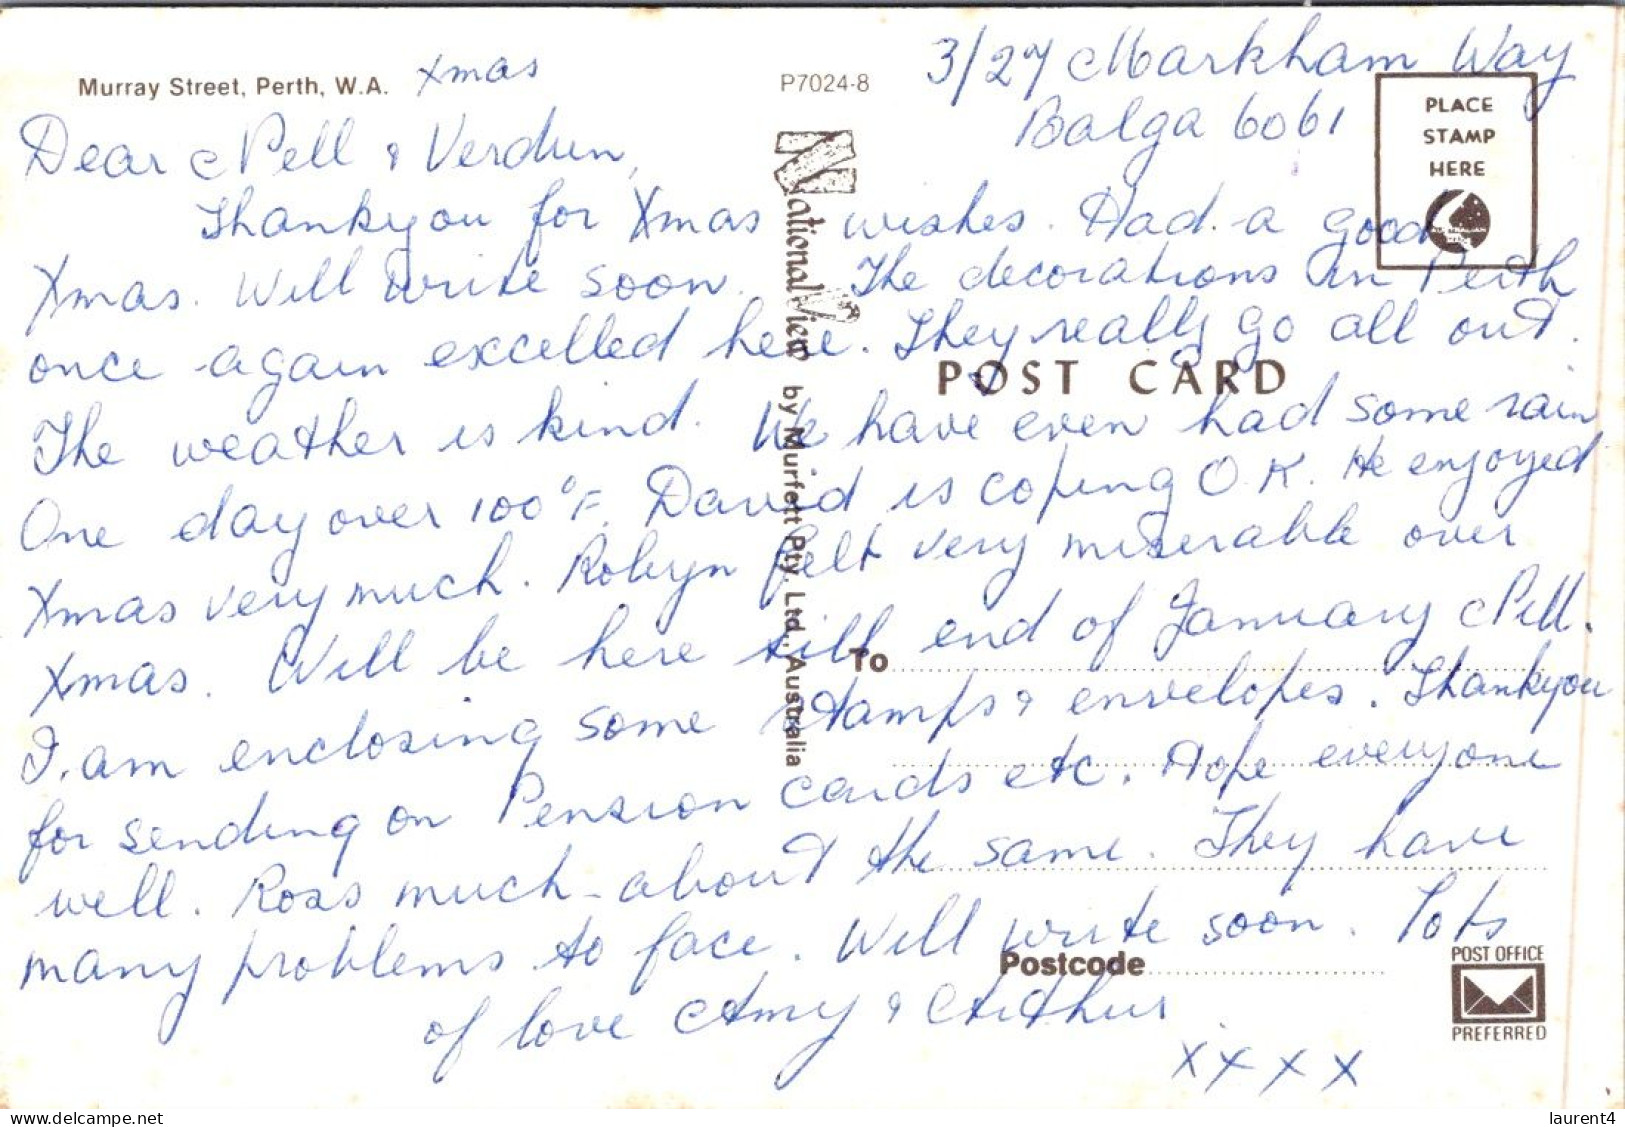 Murray Street, Perth, W.A.
Xmas
P7024-8
3/27 Markham Way
Balga 6061
PLACE
STAMP
HERE
Dear Nell & Verdun,
Thankyou for Xmas wishes. Had a good
Xmas. Will write soon. The decorations in Perth
once again excelled here. They really go all out.
The weather is kind. We have even had some rain
One day over 100°F. David is coping O.K. He enjoyed
Xmas very much. Robyn felt very miserable over
Xmas. Will be here till end of January Nell.
I am enclosing some stamps & envelopes. Thankyou
for sending on Pension cards etc. Hope everyone
well. Ross much about the same. They have
many problems to face. Will write soon. Lots
of love Amy & Arthur
XXXX
National View by Murfett Pty. Ltd., Australia
POST CARD
To
Postcode
POST OFFICE
PREFERRED
laurent4